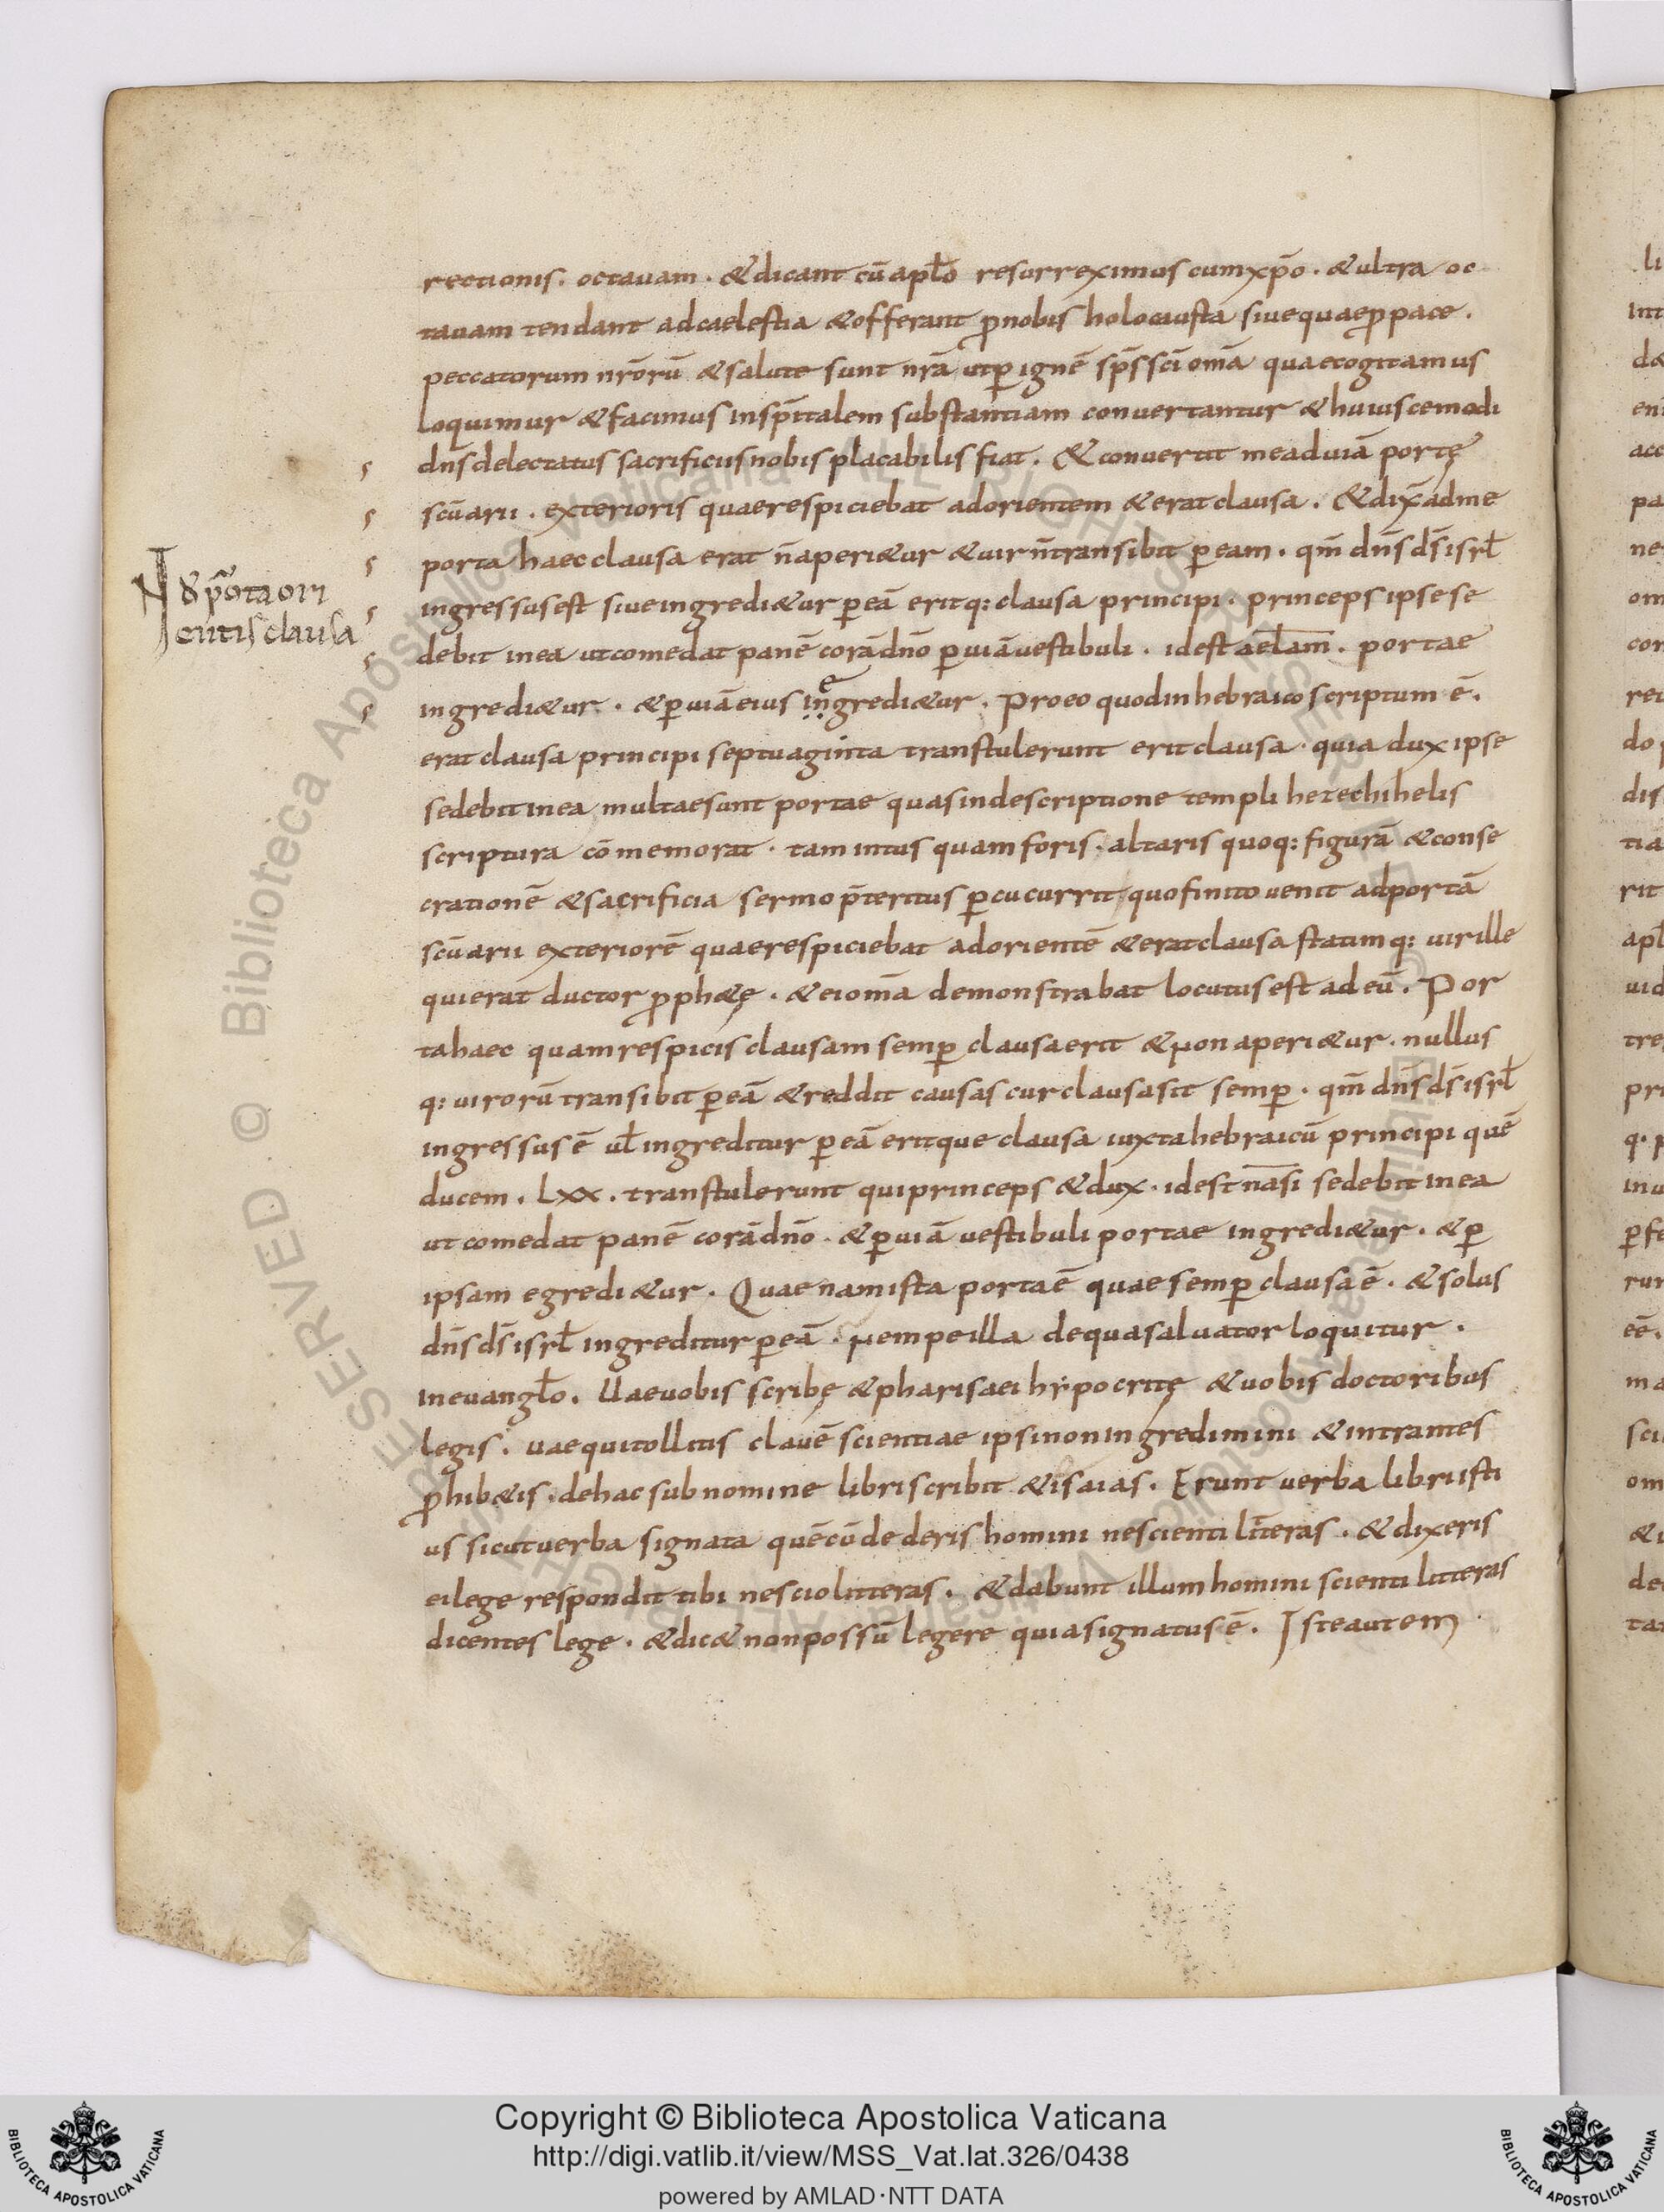 rectionis. octauam. & dicant cū apl̄o resurreximus cum xp̄o. & ultra oc
tauam tendant ad caelestia & offerant ꝓ nobis holocausta siue quae ꝓ pace.
peccatorum nr̄orū & salute sunt nr̄a ut ꝑ ignē sp̄s sc̄i om̄a quae cogitamus
loquimur & facimus in sp̄italem substantiam conuertantur & huiuscemodi
dn̄s delectatus sacrificiis nobis placabilis fiat. & conuertit me ad uiā portę
sc̄uarii. exterioris quae respiciebat ad orientem & erat clausa. & dix̄ ad me
porta haec clausa erat n̄ aperi&ur & uir n̄ transibit ꝑ eam. qm̄ dn̄s ds̄ isrl̄
ingressus est siue ingredi&ur ꝑ eā eritq: clausa principi. princeps ipse se
debit in ea ut comedat panē corā dn̄o ꝑ uiā uestibuli. id est aelam. portae
ingredi&ur. & ꝑ uiā eius ingredi&ur. Pro eo quod in hebraico scriptum ē.
erat clausa principi septuaginta transtulerunt erit clausa. quia dux ipse
sedebit in ea multae sunt portae quas in descriptione templi hezechihelis
scriptura cōmemorat. tam intus quam foris. altaris quoq: figurā & conse
crationē & sacrificia sermo p̄teritus ꝑcucurrit quo finito uenit ad portā
sc̄uarii exteriorē quae respiciebat ad orientē & erat clausa statimq: uir ille
qui erat ductor ꝓph&ę. & ei om̄a demonstrabat locutus est ad eū. Por
ta haec quam respicis clausam semꝑ clausa erit & non aperi&ur. nullus
q: uirorū transibit ꝑ eā & reddit causas cur clausa sit semꝑ. qm̄ dn̄s ds̄ isrl̄
ingressus ē ul̄ ingreditur ꝑ eā eritque clausa iuxta hebraicū principi quē
ducem. Lxx. transtulerunt qui princeps & dux. id est nasi sedebit in ea
ut comedat panē corā dn̄o. & ꝑ uiā uestibuli portae ingredi&ur. & ꝑ
ipsam egredi&ur. Quaenam ista porta ē quae semꝑ clausa ē. & solus
dn̄s ds̄ isrl̄ ingreditur ꝑ eā. nempe illa de qua saluator loquitur.
in euangl̄o. Uae uobis scribę & pharisaei hypocritę & uobis doctoribus
legis. uae qui tollitis clauē scientiae ipsi non ingredimini & intrantes
ꝓhib&is. de hac sub nomine libri scribit & isaias. Erunt uerba libri isti
us sicut uerba signata quē cū dederis homini nescienti litteras. & dixeris
ei lege respondit tibi nescio litteras. & dabunt illum homini scienti litteras
dicentes lege. & dic& non possū legere quia signatus ē. Iste autem
ori
entis clausa
Copyright © Biblioteca Apostolica Vaticana
http://digi.vatlib.it/view/MSS_Vat.lat.326/0438
powered by AMLAD·NTT DATA
BIBLIOTECA APOSTOLICA VATICANA
BIBLIOTECA APOSTOLICA VATICANA